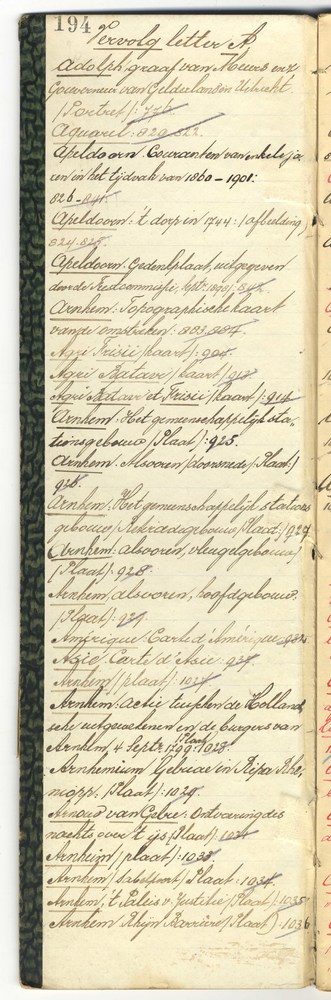 194
Vervolg letter A.
Adolph, graaf van Meurs enz
Gouverneur van Gelderland en Utrecht
(Portret): 776
Aquarel: 820. 822.
Apeldoorn. Couranten van enkele ja
ren in het tijdvak van 1860 - 1901:
826 - 841
Apeldoorn: 't dorp in 1744: (afbeelding)
824. 825.
Apeldoorn: Gedenkplaat, uitgegeven
door de Feestcommissie, Sept. 1898:
Arnhem: Topographische kaart
van de omstreken: 803. 804.
Agri Frisii (kaart): 904.
Agri Batavi (kaart) 913
Agri Batavi et Frisii (kaart): 914
Arnhem: Het gemeenschappelijk sta-
tionsgebouw (Plaat): 925.
Arnhem. Alsvoren (doorsnede) (Plaat)
926.
Arnhem: Het gemeenschappelijk stations
gebouw (Plaat): 927
(Arnhem: alsvoren, vleugelgebouw)
(Plaat): 928.
Arnhem, alsvoren, hoofdgebouw.
(Plaat): 929.
Amérique: Carte d'Amérique:
Asie: Carte d'Asie: 937.
Arnhem (plaat): 1027
Arnhem: Actie tusschen de Holland
sche uitgewekenen en de burgers van
Arnhem, 4 Septr. 1799: Plaat 1028.
Arnhemium Gelriae in Ripa Rhe-
ni opp. (Plaat): 1029.
Arnoud van Gelre: Ontvoering des
nachts over 't ijs (Plaat) 1031
Arnheim (plaat): 1033.
Arnhem (Sabelpoort) Plaat: 1034.
Arnhem, 't Paleis v. Justitie (Plaat): 1035
Arnhem Rhijn Barrière (Plaat): 1036